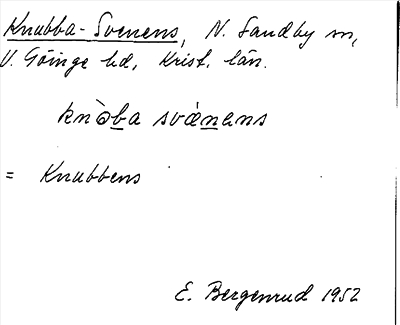 Knubba-Svenens, N. Sandby sn,
V. Göinge hd, Krist. län.
knòba svǽnens
= Knubbens
E. Bergenrud 1952